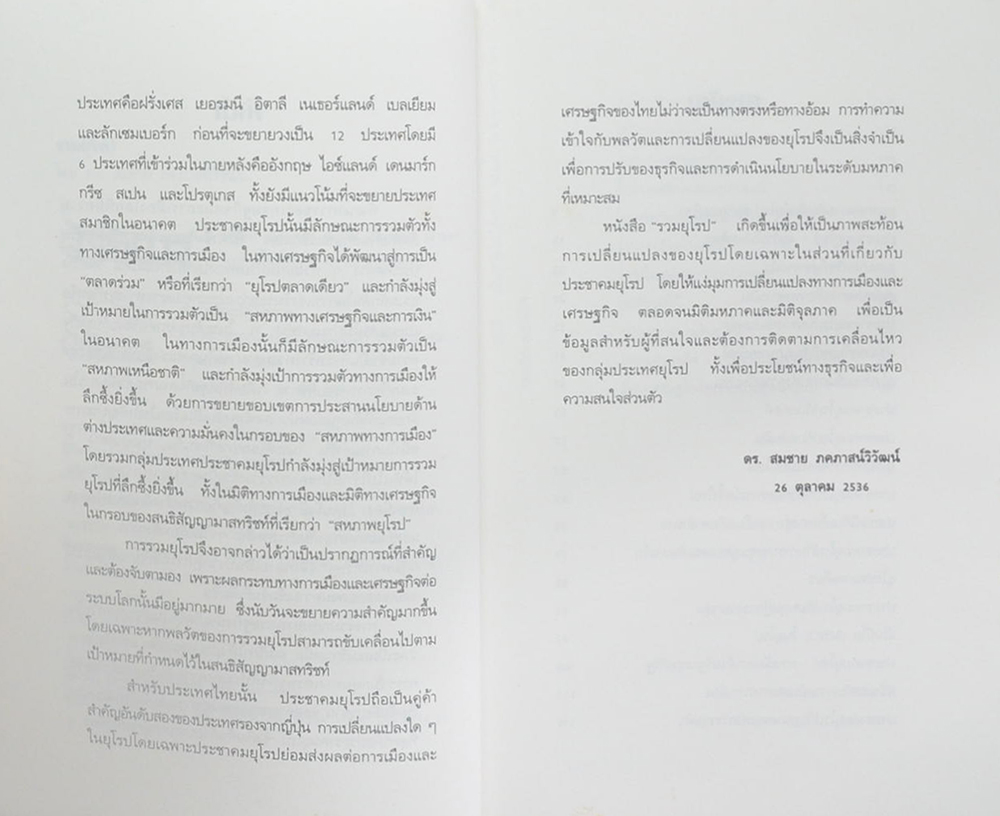 ประเทศคือฝรั่งเศส เยอรมนี อิตาลี เนเธอร์แลนด์ เบลเยียม
และลักเซมเบอร์ก ก่อนที่จะขยายวงเป็น 12 ประเทศโดยมี
6 ประเทศที่เข้าร่วมในภายหลังคืออังกฤษ ไอซ์แลนด์ เดนมาร์ก
กรีซ สเปน และโปรตุเกส ทั้งยังมีแนวโน้มที่จะขยายประเทศ
สมาชิกในอนาคต ประชาคมยุโรปนั้นมีลักษณะการรวมตัวทั้ง
ทางเศรษฐกิจและการเมือง ในทางเศรษฐกิจได้พัฒนาสู่การเป็น
"ตลาดร่วม" หรือที่เรียกว่า "ยุโรปตลาดเดียว" และกำลังมุ่งสู่
เป้าหมายในการรวมตัวเป็น "สหภาพทางเศรษฐกิจและการเงิน"
ในอนาคต ในทางการเมืองนั้นก็มีลักษณะการรวมตัวเป็น
"สหภาพเหนือชาติ" และกำลังมุ่งเป้าการรวมตัวทางการเมืองให้
ลึกซึ้งยิ่งขึ้น ด้วยการขยายขอบเขตการประสานนโยบายด้าน
ต่างประเทศและความมั่นคงในกรอบของ "สหภาพทางการเมือง"
โดยรวมกลุ่มประเทศประชาคมยุโรปกำลังมุ่งสู่เป้าหมายการรวม
ยุโรปที่ลึกซึ้งยิ่งขึ้น ทั้งในมิติทางการเมืองและมิติทางเศรษฐกิจ
ในกรอบของสนธิสัญญามาสทริชท์ที่เรียกว่า "สหภาพยุโรป"
การรวมยุโรปจึงอาจกล่าวได้ว่าเป็นปรากฏการณ์ที่สำคัญ
และต้องจับตามอง เพราะผลกระทบทางการเมืองและเศรษฐกิจต่อ
ระบบโลกนั้นมีอยู่มากมาย ซึ่งนับวันจะขยายความสำคัญมากขึ้น
โดยเฉพาะหากพลวัตของการรวมยุโรปสามารถขับเคลื่อนไปตาม
เป้าหมายที่กำหนดไว้ในสนธิสัญญามาสทริชท์
สำหรับประเทศไทยนั้น ประชาคมยุโรปถือเป็นคู่ค้า
สำคัญอันดับสองของประเทศรองจากญี่ปุ่น การเปลี่ยนแปลงใด ๆ
ในยุโรปโดยเฉพาะประชาคมยุโรปย่อมส่งผลต่อการเมืองและ
เศรษฐกิจของไทยไม่ว่าจะเป็นทางตรงหรือทางอ้อม การทำความ
เข้าใจกับพลวัตและการเปลี่ยนแปลงของยุโรปจึงเป็นสิ่งจำเป็น
เพื่อการปรับของธุรกิจและการดำเนินนโยบายในระดับมหภาค
ที่เหมาะสม
หนังสือ "รวมยุโรป" เกิดขึ้นเพื่อให้เป็นภาพสะท้อน
การเปลี่ยนแปลงของยุโรปโดยเฉพาะในส่วนที่เกี่ยวกับ
ประชาคมยุโรป โดยให้แง่มุมการเปลี่ยนแปลงทางการเมืองและ
เศรษฐกิจ ตลอดจนมิติมหภาคและมิติจุลภาค เพื่อเป็น
ข้อมูลสำหรับผู้ที่สนใจและต้องการติดตามการเคลื่อนไหว
ของกลุ่มประเทศยุโรป ทั้งเพื่อประโยชน์ทางธุรกิจและเพื่อ
ความสนใจส่วนตัว
ดร. สมชาย ภคภาสน์วิวัฒน์
26 ตุลาคม 2536